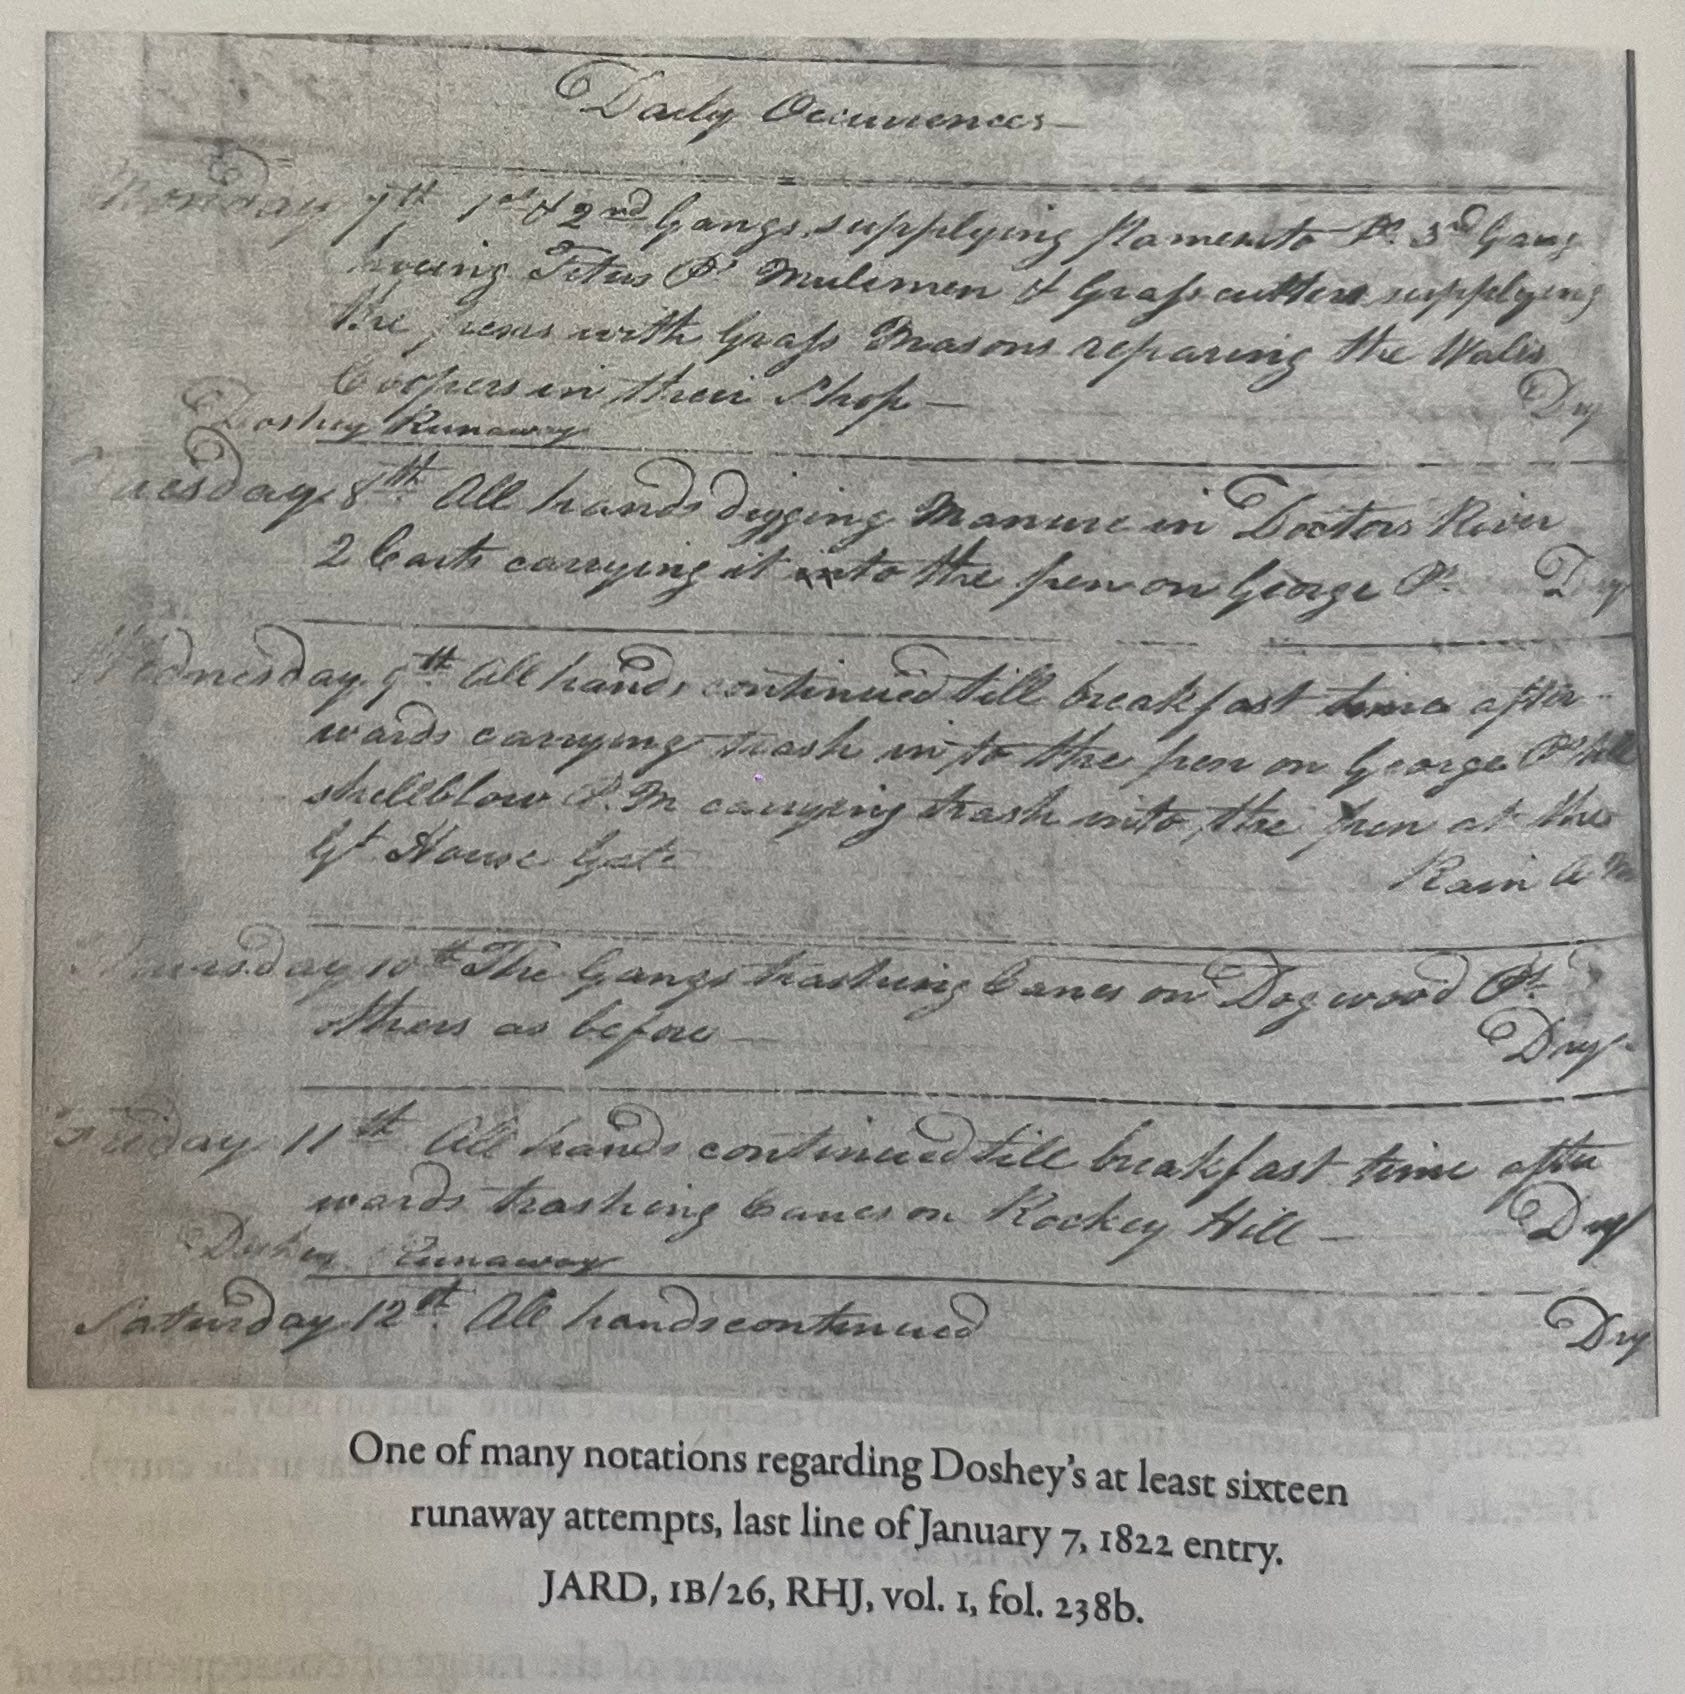 Daily Occurrences
Monday 7th 1st & 2nd Gangs supplying Pc. 3rd Gang
hoeing Titus Pc. Mulemen & Grass cutters supplying
the pens with Grass Masons reparing the Walls
Coopers in their Shop — Dry
Doshey Runaway
Tuesday 8th All hands digging Manure in Doctors River
2 Carts carrying it into the pen on George Pc. Dry
Wednesday 9th All hands continued till breakfast time after-
wards carrying trash in to the pen on George Pc. till
shellblow P.M carrying trash into the pen at the
Gt House Gate Rain A M
Thursday 10th The Gangs trashing Canes on Dogwood Pc.
others as before — Dry
Friday 11th All hands continued till breakfast time after
wards trashing Canes on Rockey Hill — Dry
Doshey Runaway
Saturday 12th All hands continued Dry
One of many notations regarding Doshey's at least sixteen
runaway attempts, last line of January 7, 1822 entry.
JARD, 1B/26, RHJ, vol. 1, fol. 238b.